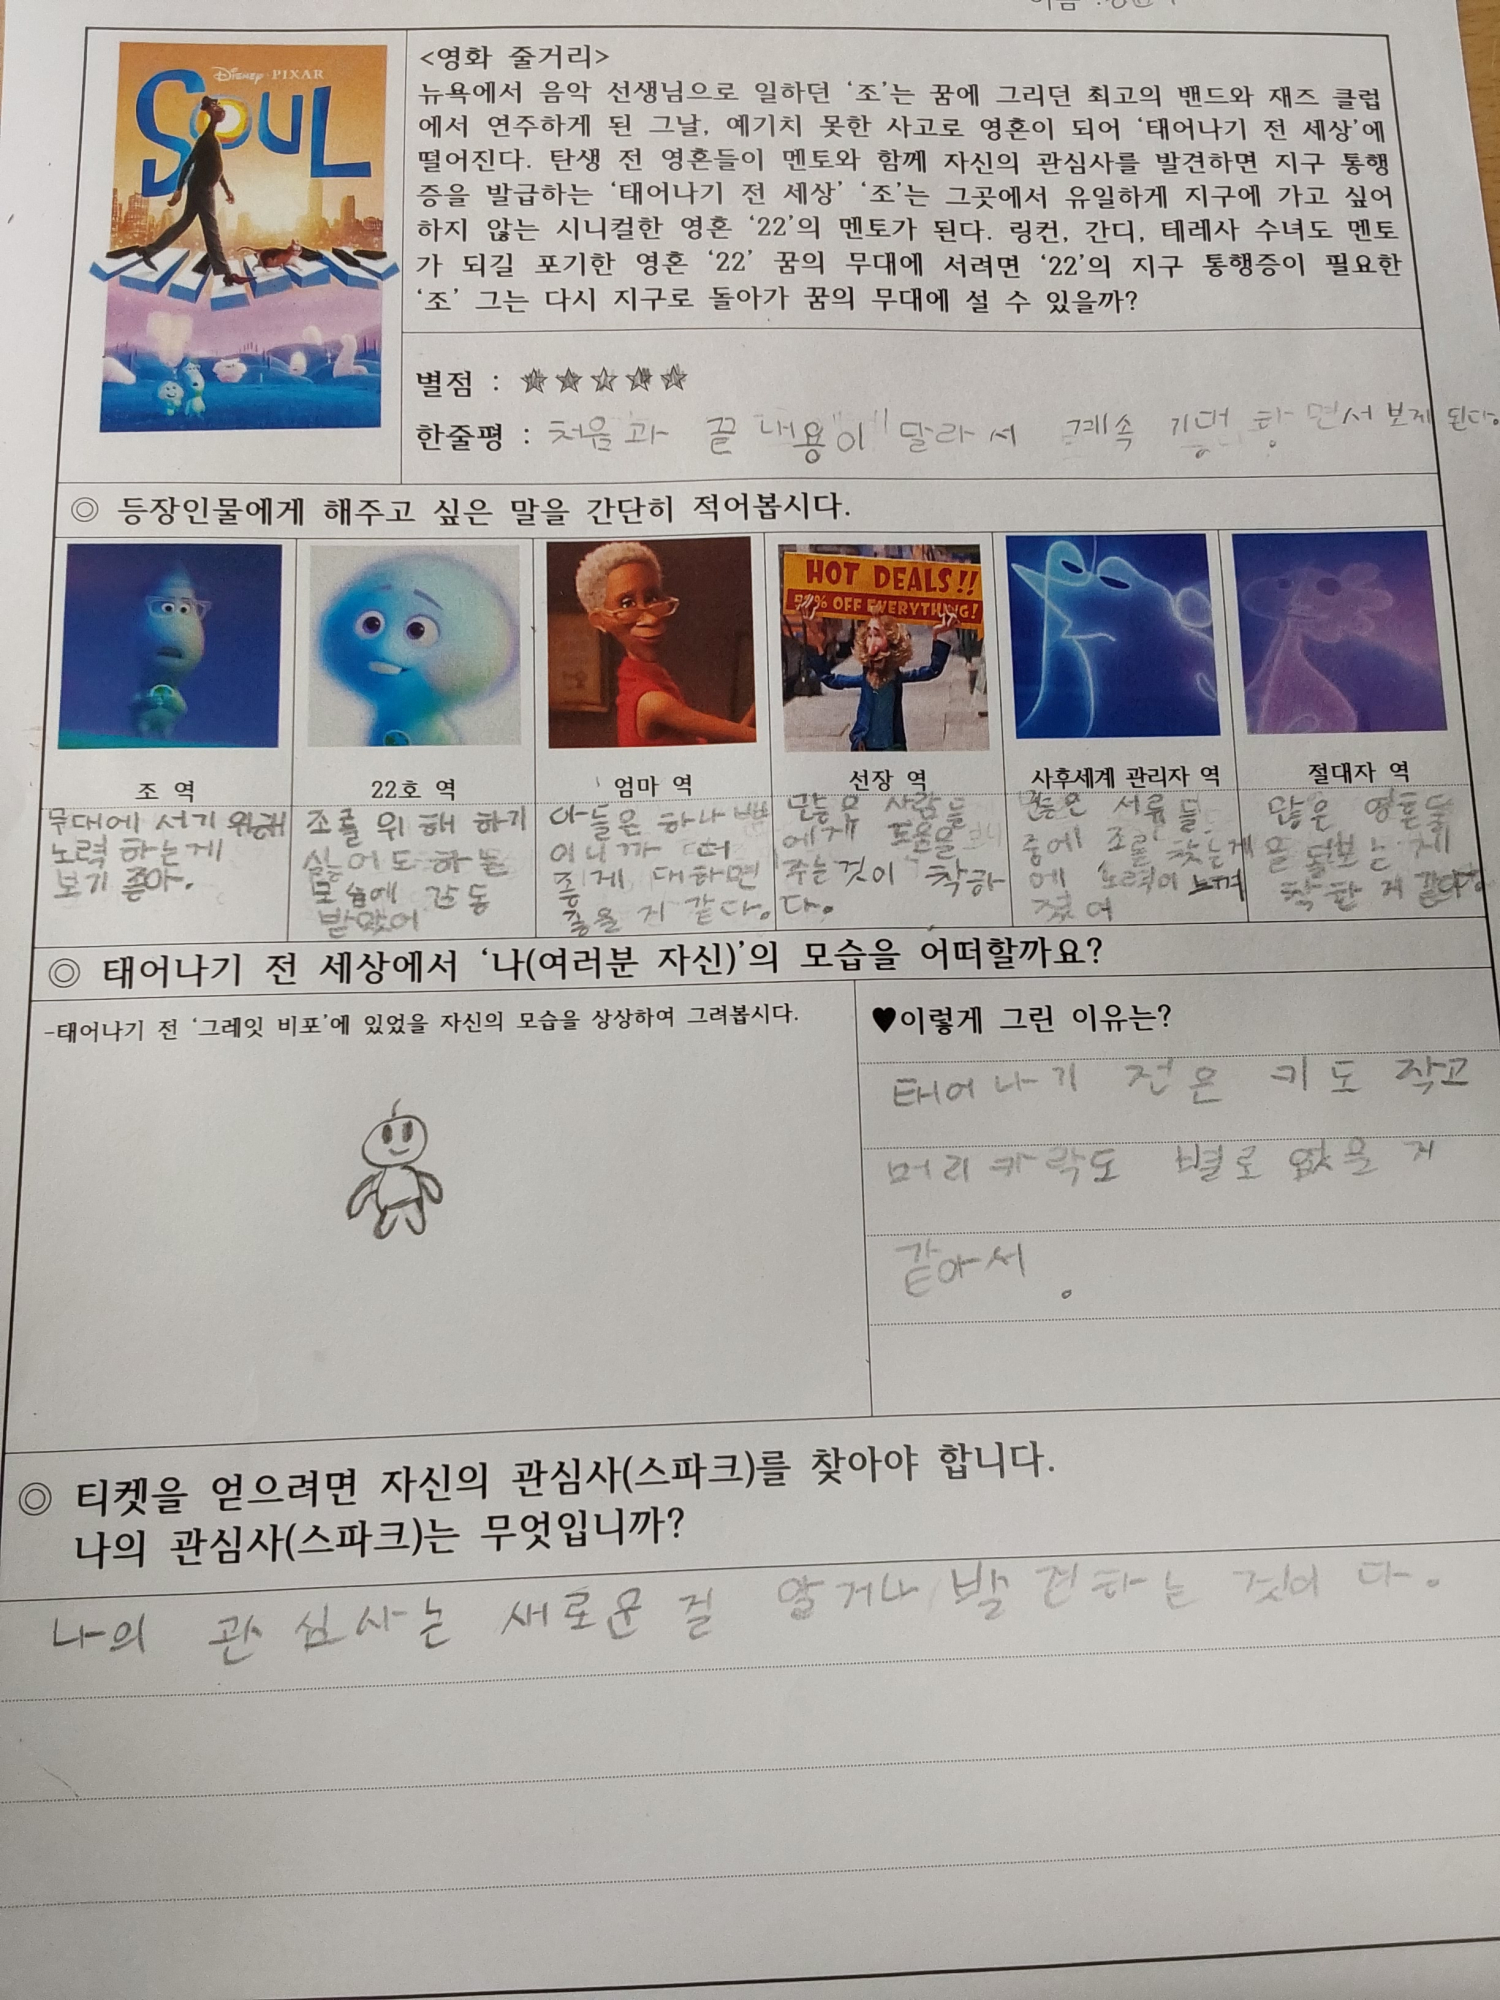 Disney·PIXAR
SOUL
<영화 줄거리>
뉴욕에서 음악 선생님으로 일하던 ‘조’는 꿈에 그리던 최고의 밴드와 재즈 클럽
에서 연주하게 된 그날, 예기치 못한 사고로 영혼이 되어 ‘태어나기 전 세상’에
떨어진다. 탄생 전 영혼들이 멘토와 함께 자신의 관심사를 발견하면 지구 통행
증을 발급하는 ‘태어나기 전 세상’ ‘조’는 그곳에서 유일하게 지구에 가고 싶어
하지 않는 시니컬한 영혼 ‘22’의 멘토가 된다. 링컨, 간디, 테레사 수녀도 멘토
가 되길 포기한 영혼 ‘22’ 꿈의 무대에 서려면 ‘22’의 지구 통행증이 필요한
‘조’ 그는 다시 지구로 돌아가 꿈의 무대에 설 수 있을까?
별점 : ☆☆☆☆☆
한줄평 : 처음과 끝 내용이 달라서 계속 기대 하면서 보게 된다.
◎ 등장인물에게 해주고 싶은 말을 간단히 적어봅시다.
HOT DEALS!!
% OFF EVERYTHING!
조 역
22호 역
엄마 역
선장 역
사후세계 관리자 역
절대자 역
무대에 서기 위해
노력 하는게
보기 좋아.
조를 위해 하기
싫어도 하는
모습에 감동
받았어
아들은 하나 뿐
이니까 더
좋게 대하면
좋을 거 같다.
많은 사람들
에게 도움을
주는것이 착하
다.
많은 서류들
중에 조를 찾는게
에 노력이 느껴
졌어
많은 영혼들
을 돌보는게
착한 거 같다
◎ 태어나기 전 세상에서 ‘나(여러분 자신)’의 모습을 어떠할까요?
-태어나기 전 ‘그레잇 비포’에 있었을 자신의 모습을 상상하여 그려봅시다.
♥이렇게 그린 이유는?
태어나기 전은 키도 작고
머리카락도 별로 없을 거
같아서.
◎ 티켓을 얻으려면 자신의 관심사(스파크)를 찾아야 합니다.
나의 관심사(스파크)는 무엇입니까?
나의 관심사는 새로운 걸 알거나 발견하는 것이다.